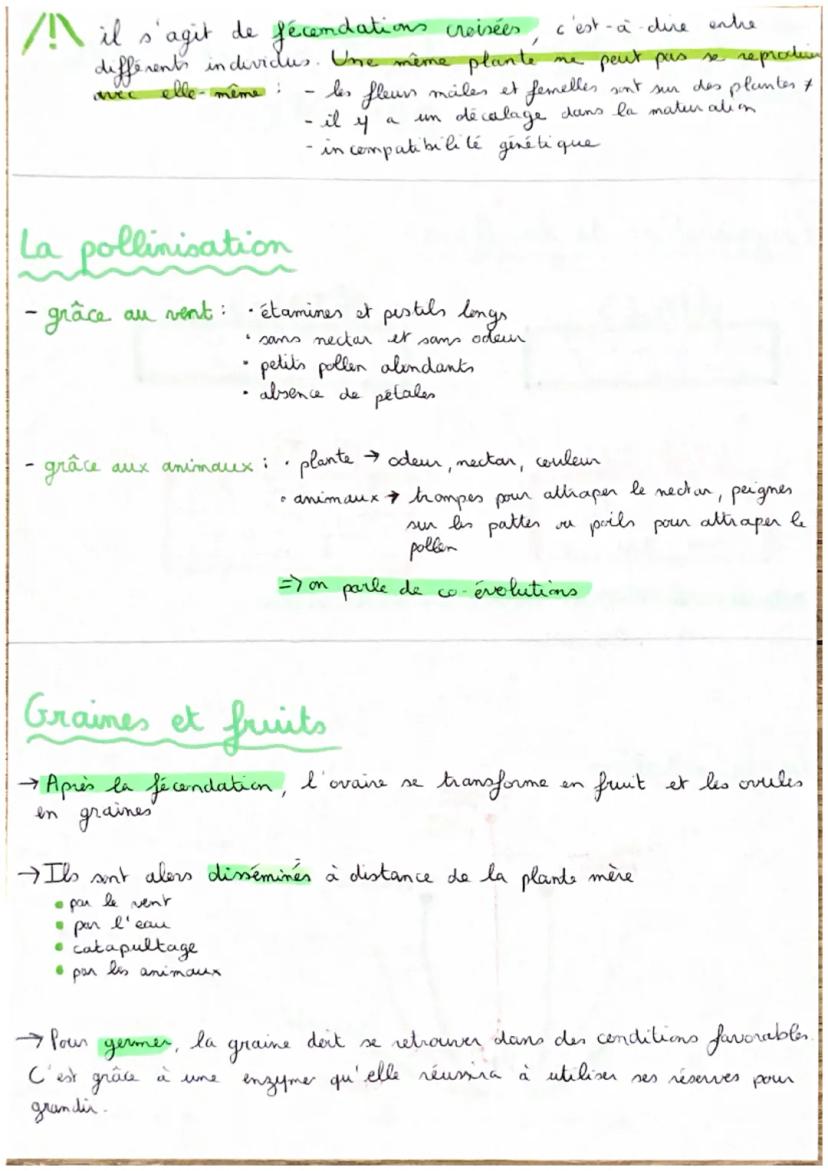 /!\ il s'agit de fécondations croisées, c'est-à-dire entre
différents individus. Une même plante ne peut pas se reproduire
avec elle-même : - les fleurs mâles et femelles sont sur des plantes ≠
- il y a un décalage dans la maturation
- incompatibilité génétique
La pollinisation
- grâce au vent : · étamines et pistils longs
· sans nectar et sans odeur
· petits pollen abondants
· absence de pétales
- grâce aux animaux : · plante → odeur, nectar, couleur
· animaux → trompes pour attraper le nectar, peignes
sur les pattes ou poils pour attraper le
pollen
=> on parle de co-évolutions
Graines et fruits
→ Après la fécondation, l'ovaire se transforme en fruit et les ovules
en graines
→ Ils sont alors disséminés à distance de la plante mère
• par le vent
• par l'eau
• catapultage
• par les animaux
→ Pour germer, la graine doit se retrouver dans des conditions favorables.
C'est grâce à une enzyme qu'elle réussira à utiliser ses réserves pour
grandir.